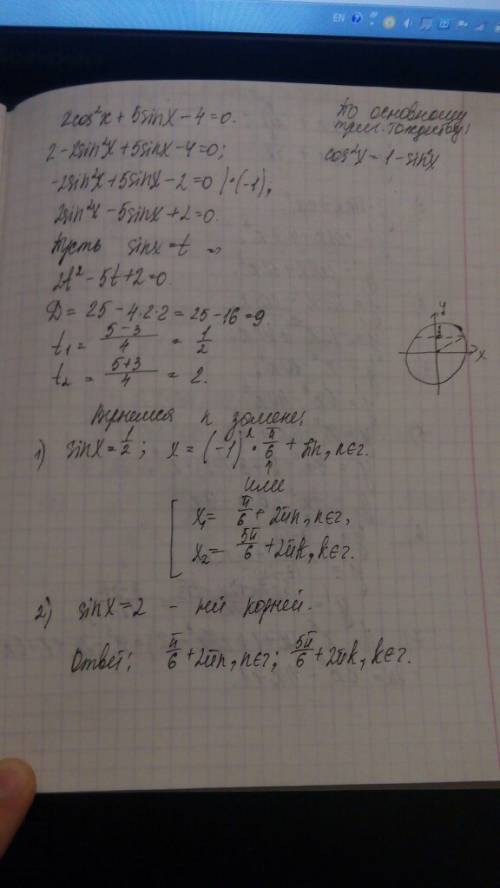 EN
2cos²x + 5sinx - 4 = 0.
По основному
триг. тождеству:
cos²x = 1 - sin²x
2 - 2sin²x + 5sinx - 4 = 0;
-2sin²x + 5sinx - 2 = 0 | · (-1),
2sin²x - 5sinx + 2 = 0.
Пусть sinx = t ⇒
2t² - 5t + 2 = 0.
D = 25 - 4·2·2 = 25 - 16 = 9.
t₁ = (5-3)/4 = 1/2
t₂ = (5+3)/4 = 2.
y
x
Вернемся к замене:
1) sinx = 1/2; x = (-1)ⁿ · π/6 + πn, n∈z.
или
x₁ = π/6 + 2πn, n∈z,
x₂ = 5π/6 + 2πk, k∈z.
2) sinx = 2 - нет корней.
Ответ: π/6 + 2πn, n∈z; 5π/6 + 2πk, k∈z.